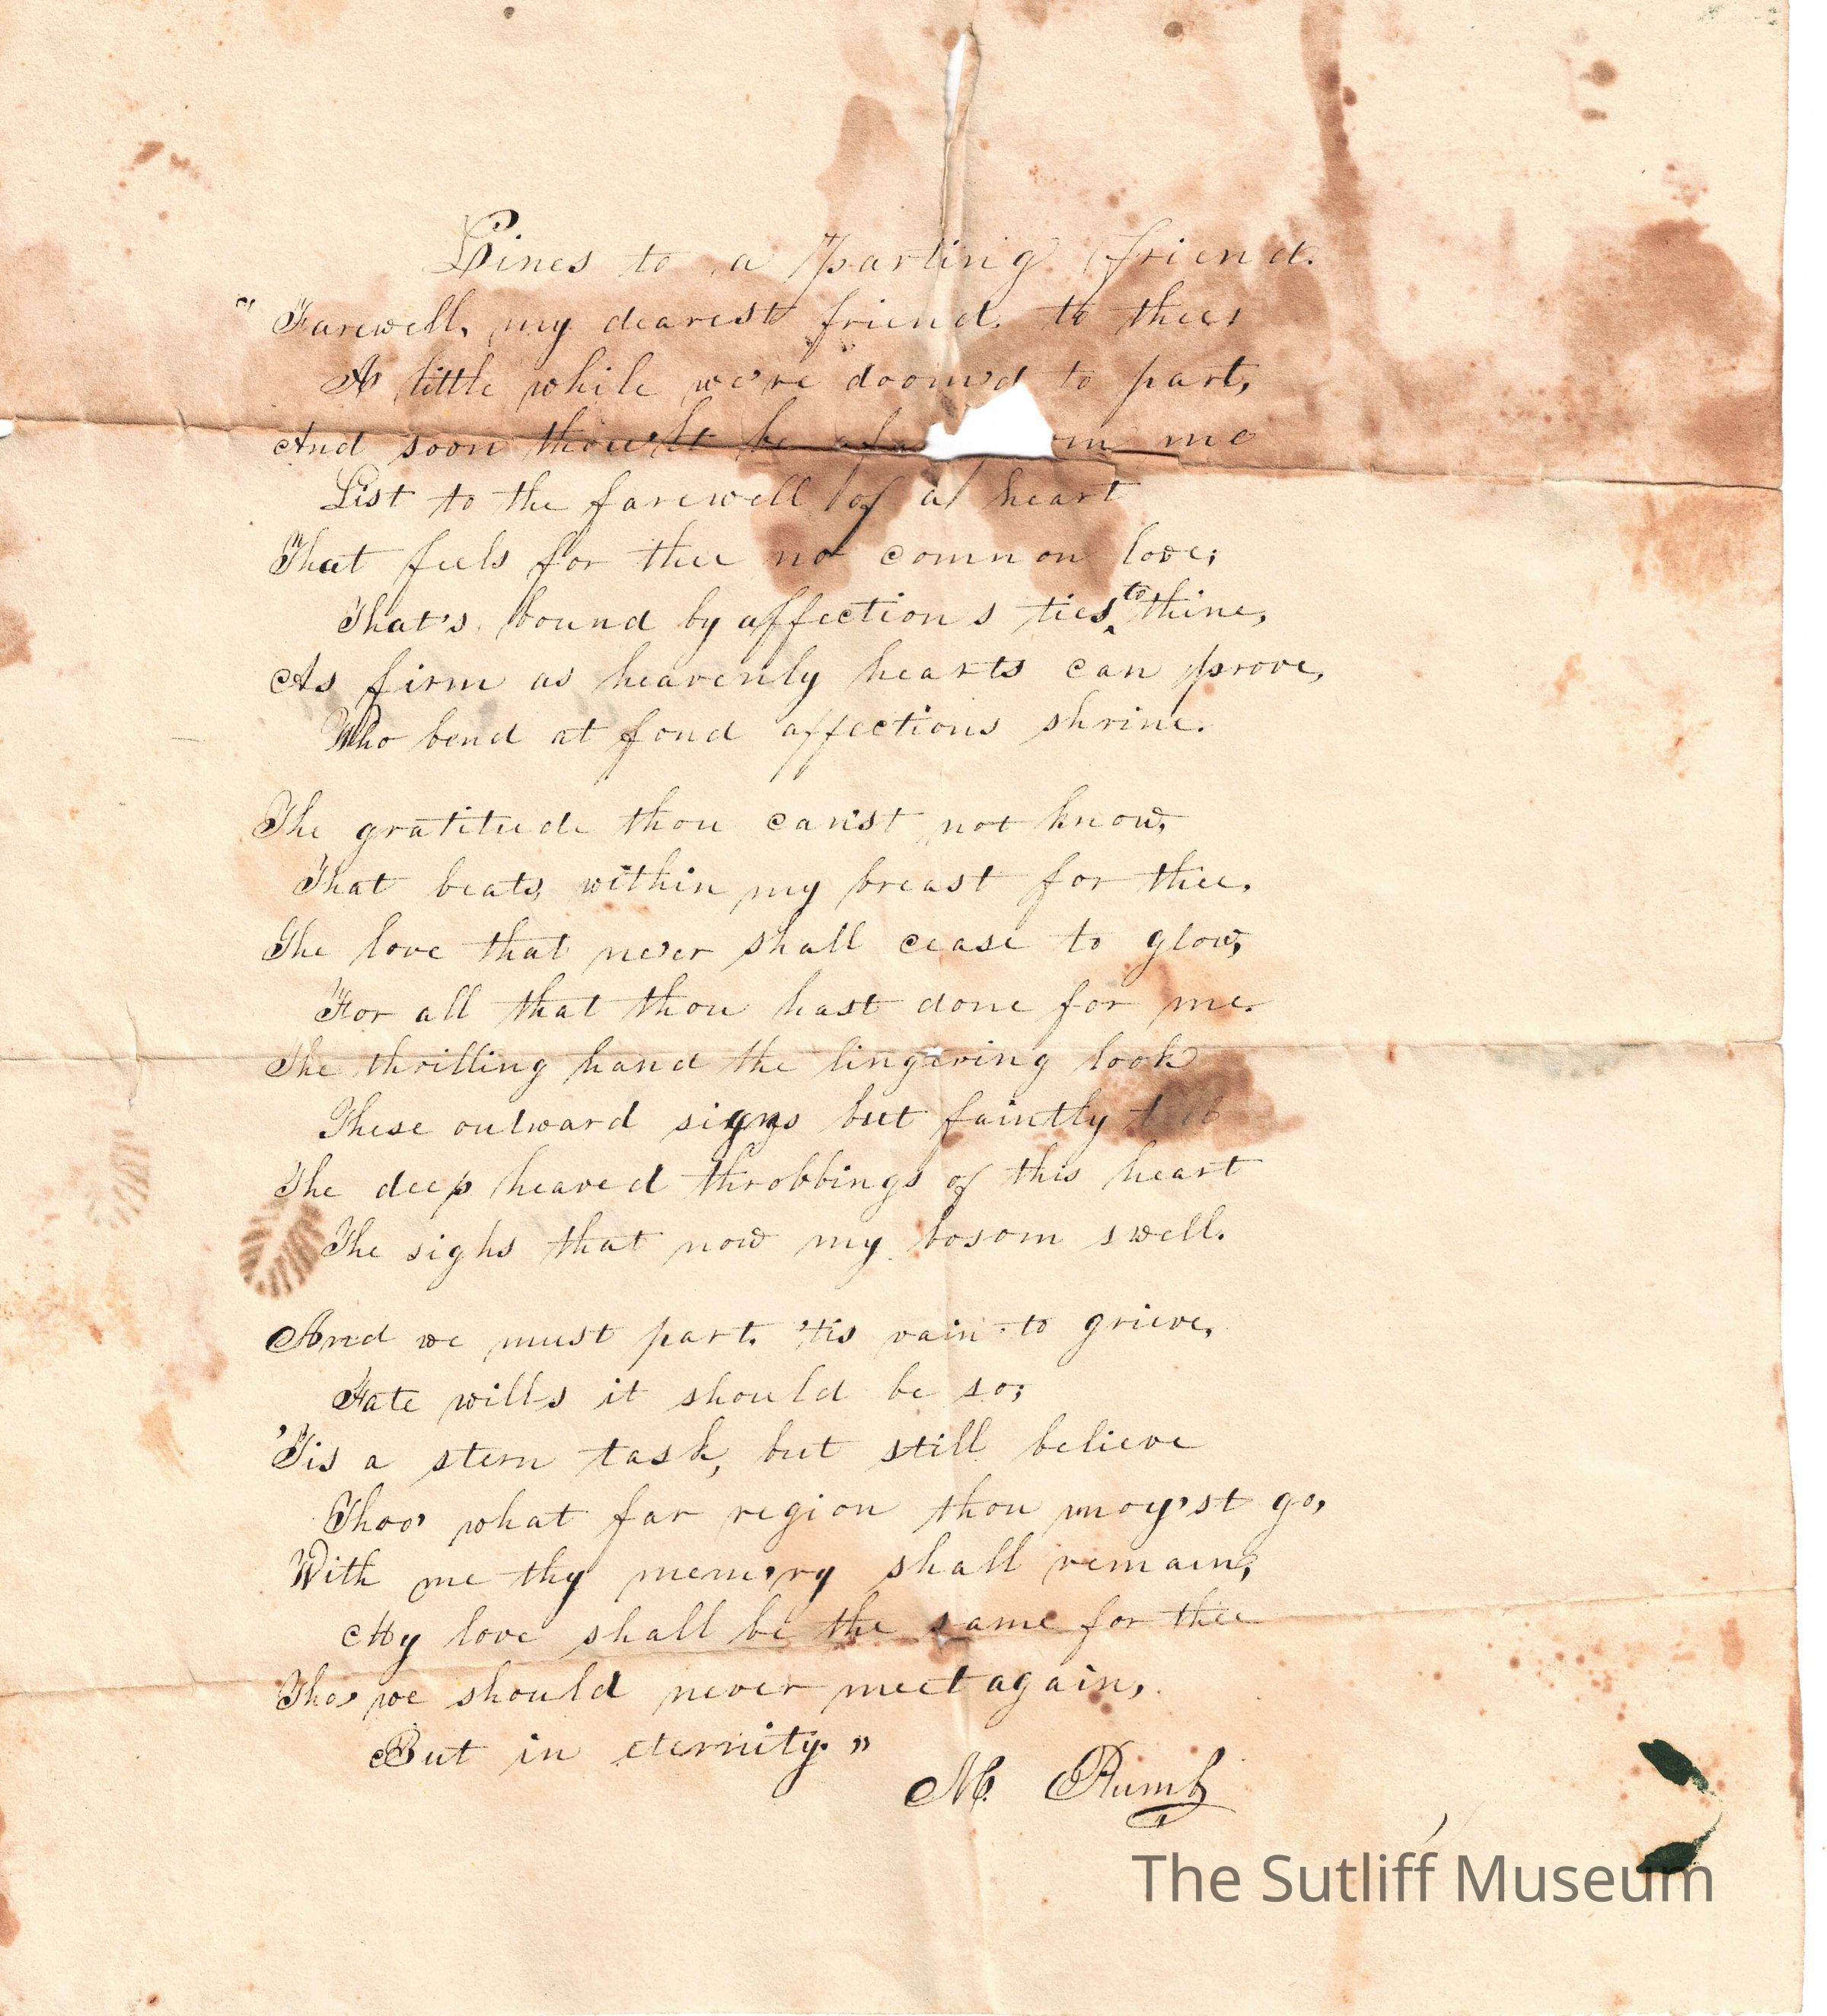 Lines to a Parting friend.
"Farewell, my dearest friend, to thee,
A little while we're doom'd to part,
And soon thou'lt be me
List to the farewell of a heart
That feels for thee no common love;
That's bound by affections ties to thine,
As firm as heavenly hearts can prove,
Who bend at fond affections shrine.
The gratitude thou can'st not know,
That beats within my breast for thee.
The love that never shall cease to glow,
For all that thou hast done for me.
The thrilling hand the lingering look
These outward signs but faintly
The deep heaved throbbings of this heart
The sighs that now my bosom swell.
And we must part. 'tis vain to grieve,
Fate wills it should be so;
'Tis a stern task, but still believe
Thoo' what far region thou may'st go,
With me thy memory shall remain,
My love shall be the same for thee
Tho' we should never meet again,
But in eternity."
M.
The Sutliff Museum